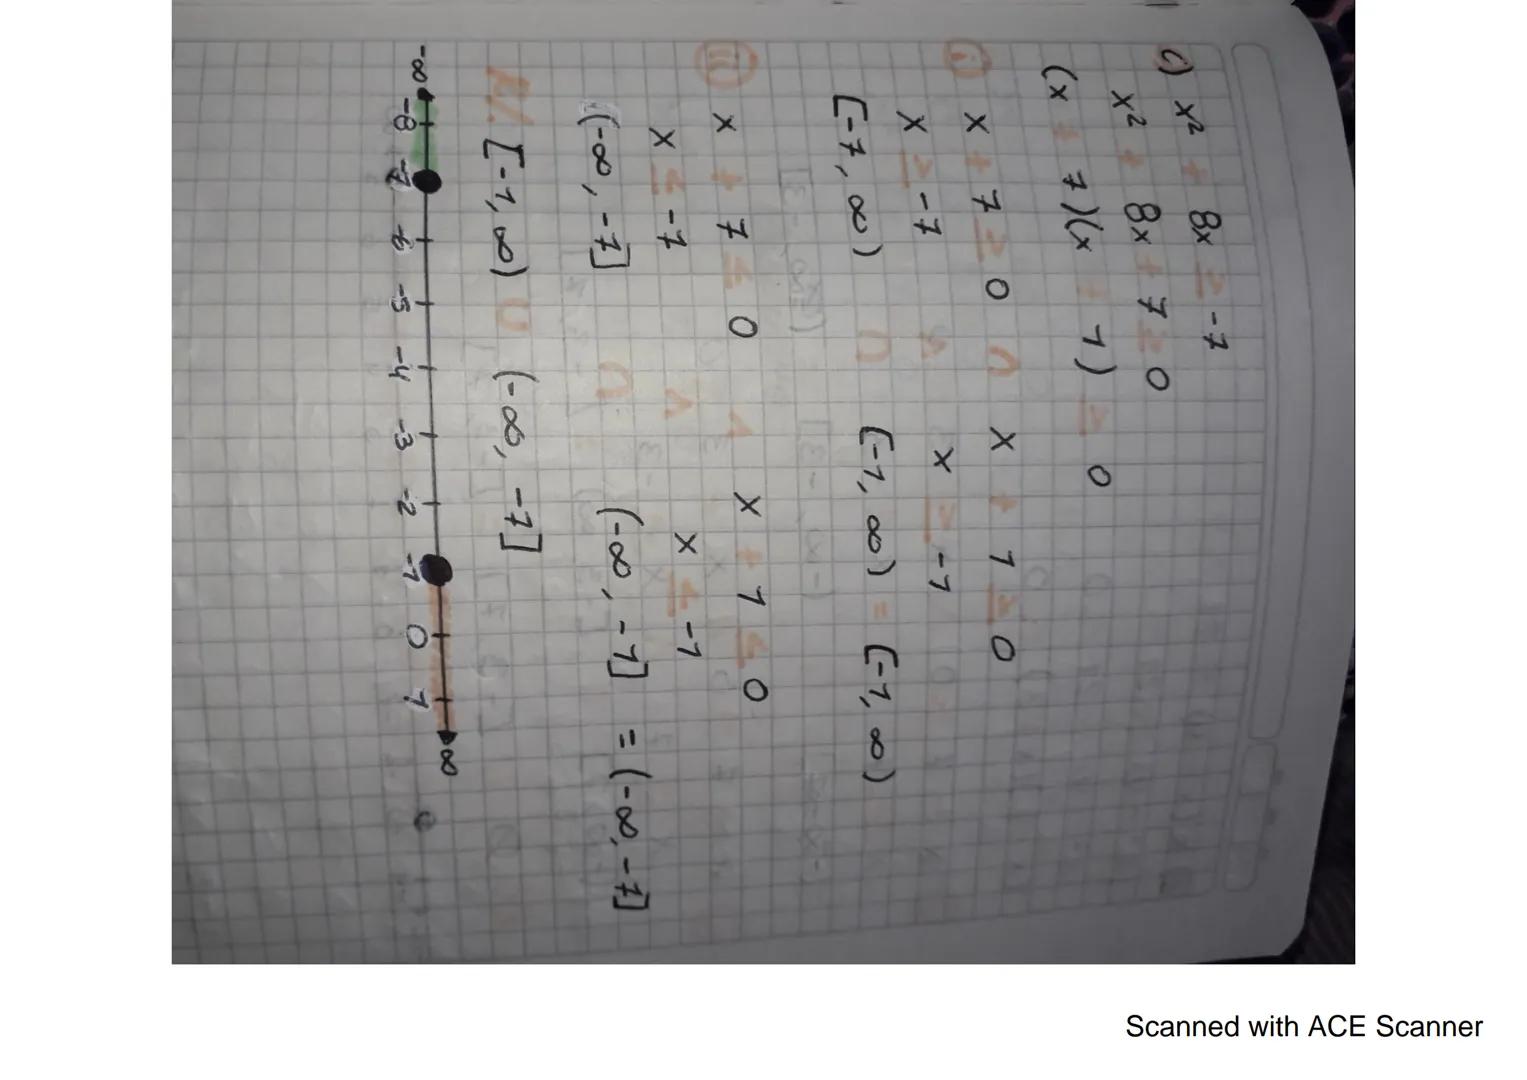 c) x² + 8x ≥ -7
x² + 8x + 7 ≥ 0
(x + 7)(x + 1) ≥ 0
i) x + 7 ≥ 0 ∩ x + 1 ≥ 0
x ≥ -7 ∧ x ≥ -1
[-7, ∞) ∩ [-1, ∞) = [-1, ∞)
ii) x + 7 ≤ 0 ∧ x + 1 ≤ 0
x ≤ -7 ∧ x ≤ -1
(-∞, -7] ∩ (-∞, -1] = (-∞, -7]
R/. [-1, ∞) ∪ (-∞, -7]
-∞ -8 -7 -6 -5 -4 -3 -2 -1 0 1 ∞
Scanned with ACE Scanner